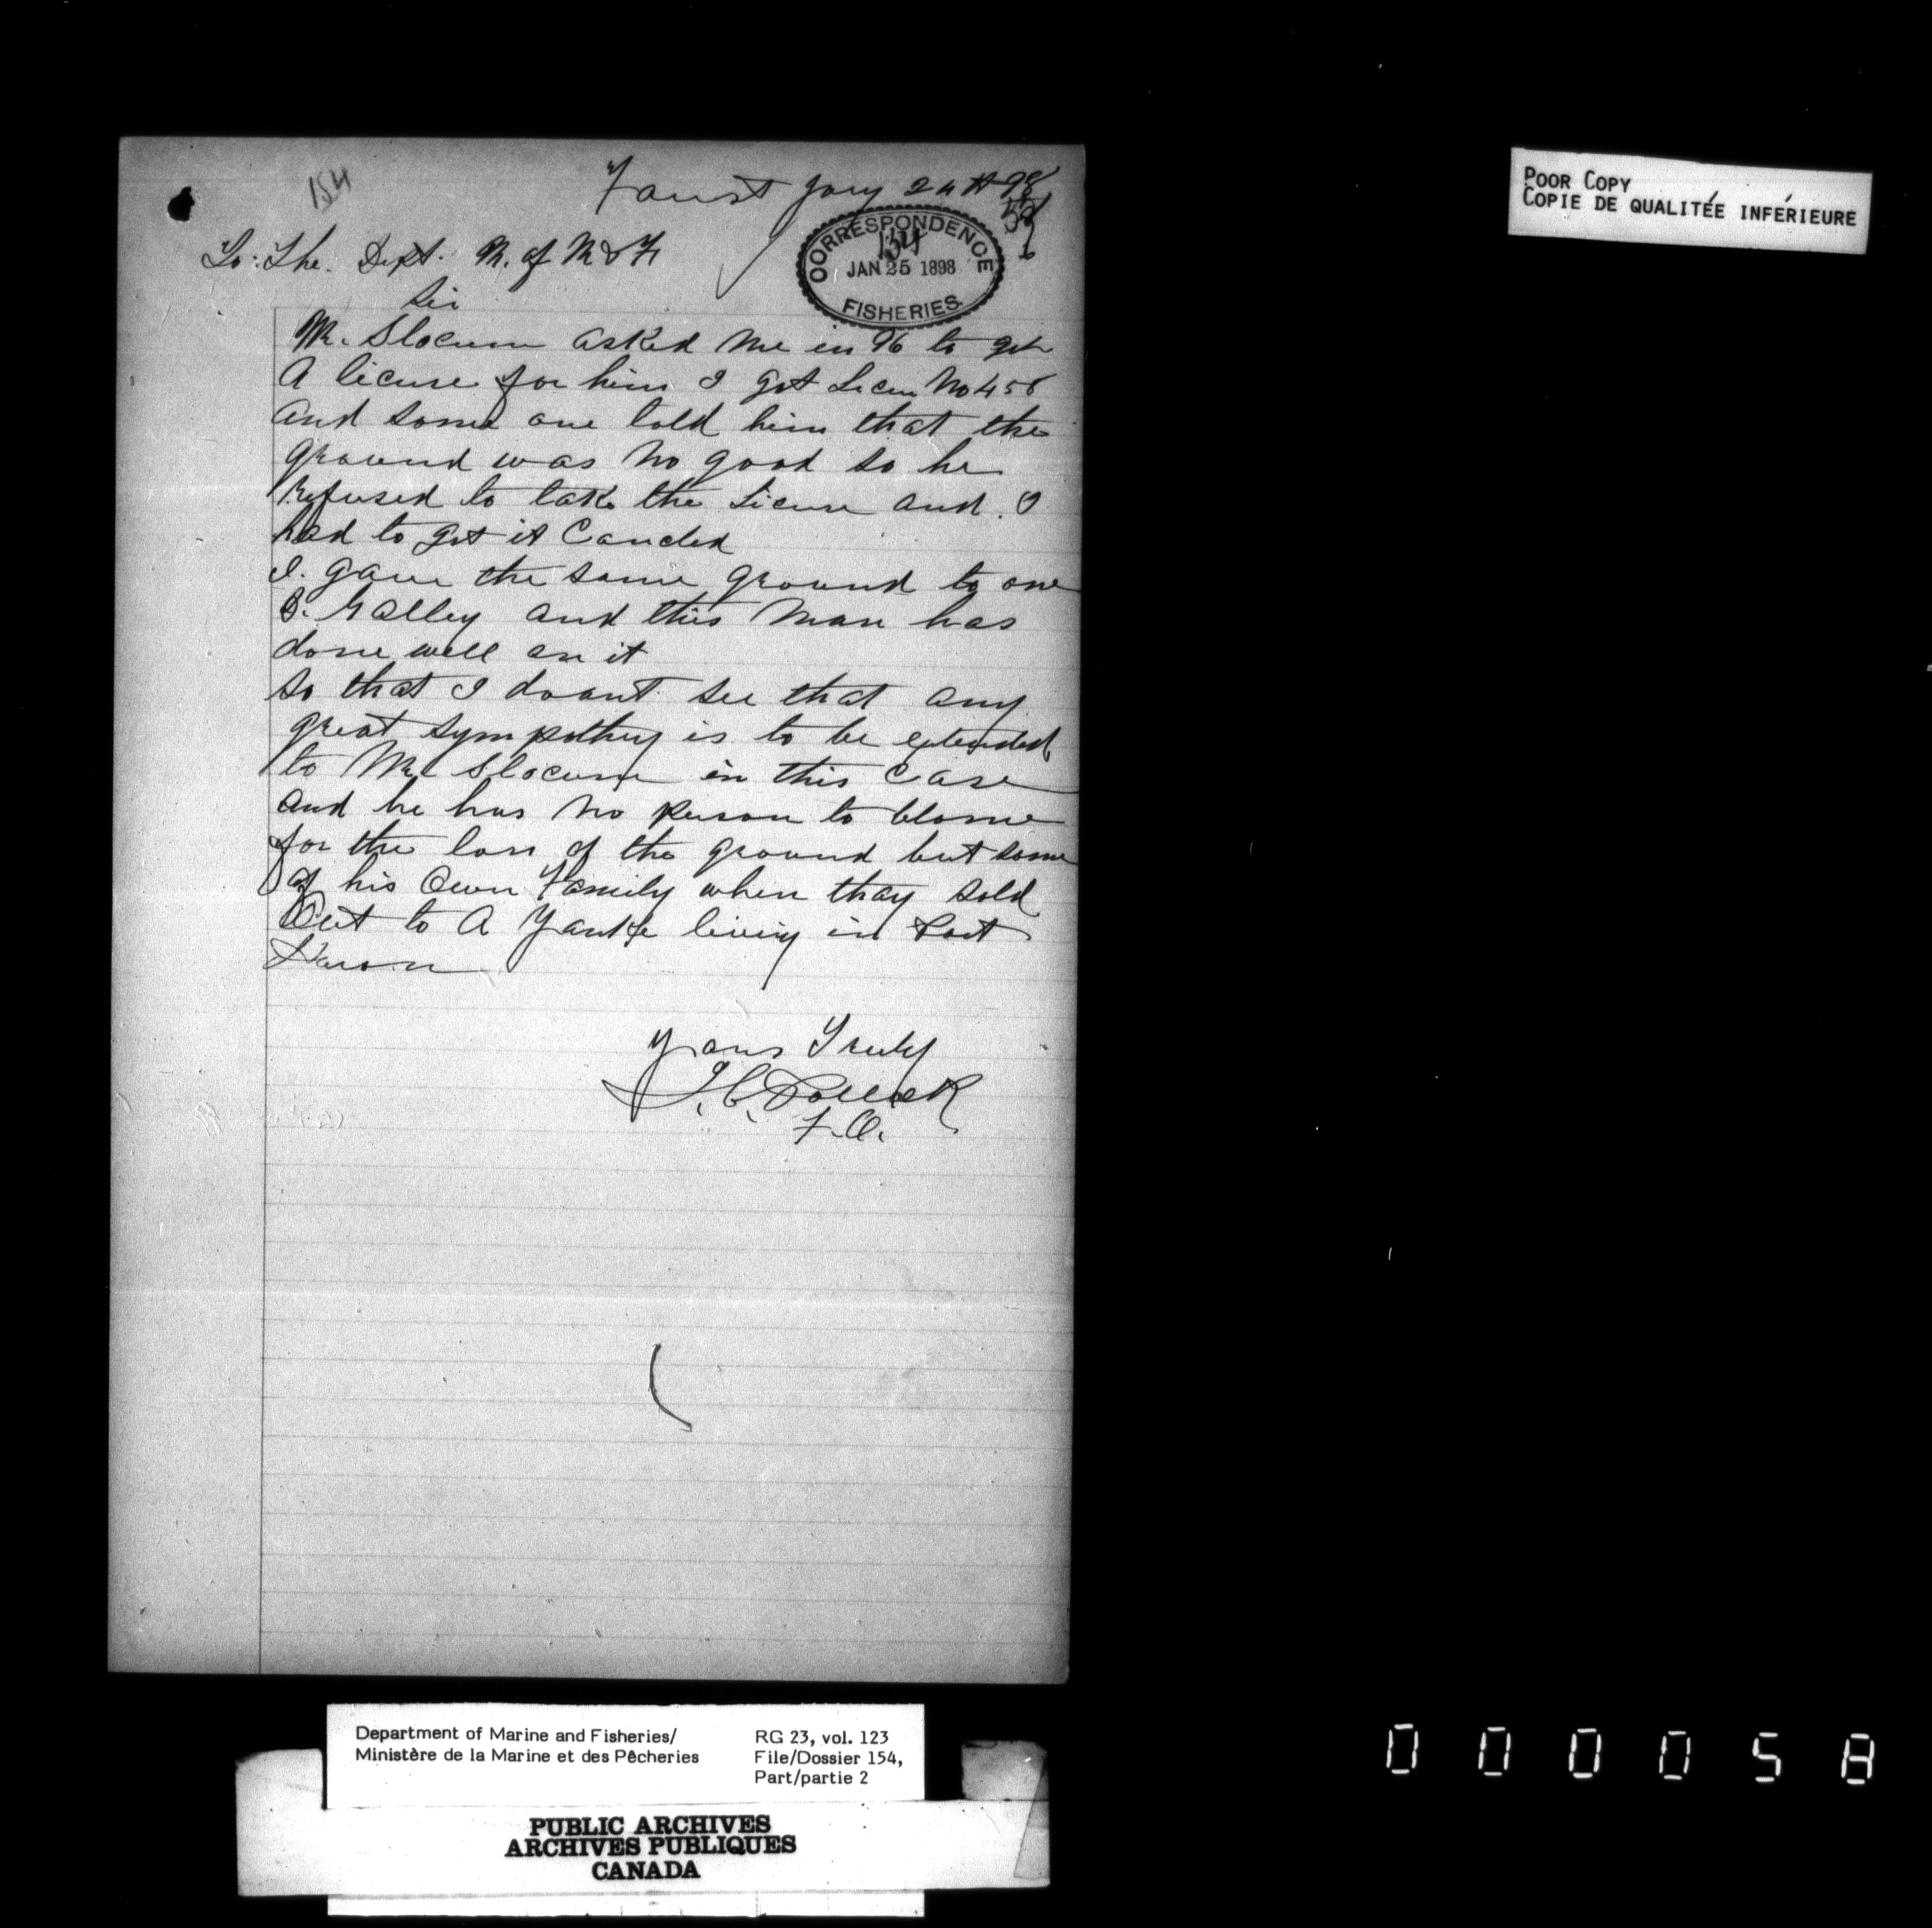 154
Faust Jany 24th 98
To: The. Dept. M. of M & F
CORRESPONDENCE
154
JAN 25 1898
FISHERIES.
Sir
Mr. Slocum asked me in 96 to get
A licuse for him I got Licen No 458
and some one told him that the
ground was no good so he
refused to take the Licuse and. I
had to get it Canceled
I. gave the same ground to one
B. Galley and this man has
done well on it
So that I doant see that any
great sympothy is to be extended
to Mr Slocum in this Case
and he has no person to blame
for the loss of the ground but some
of his Own Family when thay sold
Out to A Yanke living in Port
Huron
yours Truly
F.O.
POOR COPY
COPIE DE QUALITÉE INFÉRIEURE
Department of Marine and Fisheries/
Ministère de la Marine et des Pêcheries
RG 23, vol. 123
File/Dossier 154,
Part/partie 2
PUBLIC ARCHIVES
ARCHIVES PUBLIQUES
CANADA
000058